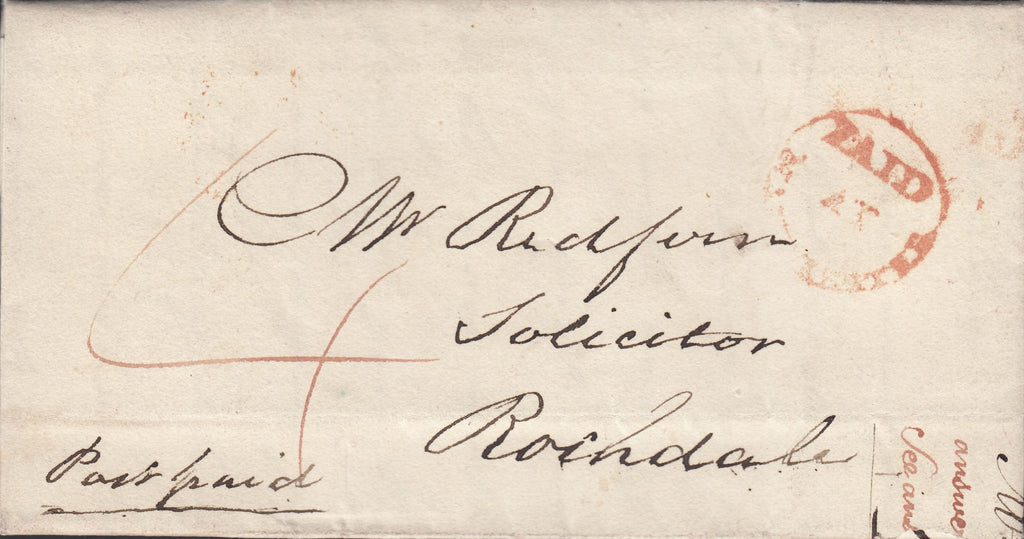 PAID
AT
Mr Redfern
Solicitor
Rochdale
4
Post paid
answer
See ans